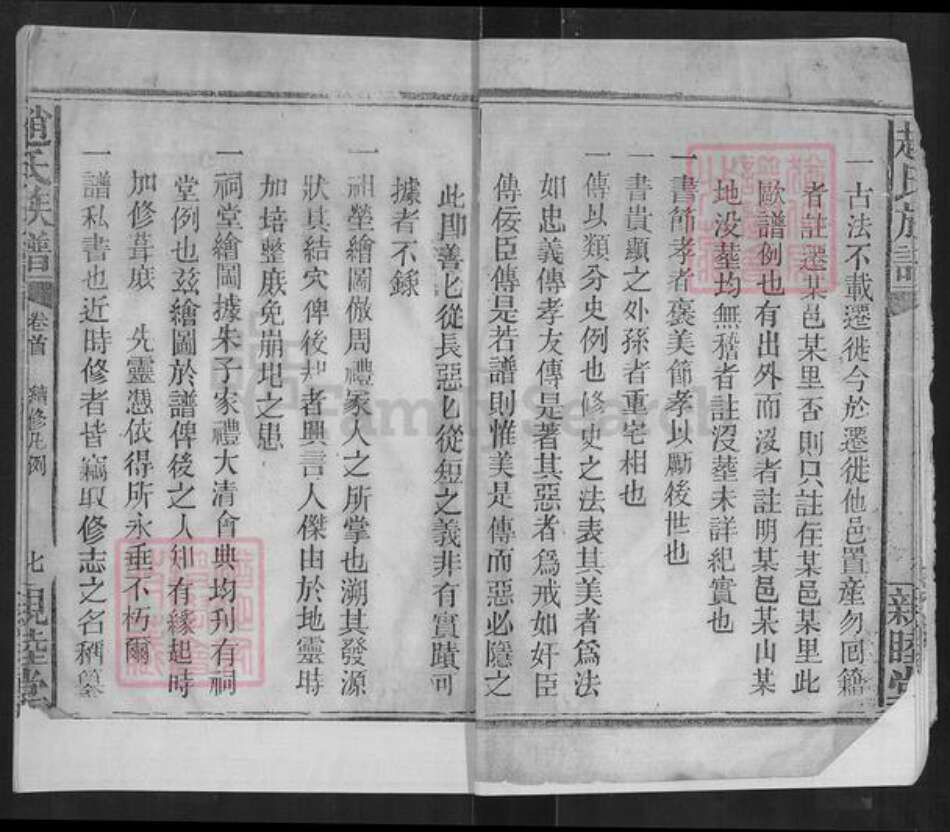 一古法不載遷徙今於遷徙他邑置產勿囘籍
者註遷某邑某里否則只註住某邑某里此
歐譜例也有出外而沒者註明某邑某山某
地没塟均無稽者註沒塟未詳紀實也
一書節孝者褒美節孝以勵後世也
一書貴顯之外孫者重宅相也
一傳以類分史例也修史之法表其美者爲法
如忠義傳孝友傳是著其惡者爲戒如奸臣
傳佞臣傳是若譜則惟美是傳而惡必隱之
此即善善從長惡惡從短之義非有實蹟可
據者不錄
一祖塋繪圖倣周禮冢人之所掌也溯其發源
狀其結穴俾後起者興言人傑由於地靈時
加培整庶免崩圯之患
一祠堂繪圖據朱子家禮大清會典均刋有祠
堂例也茲繪圖於譜俾後之人知有緣起時
加修葺庶 先靈憑依得所永垂不朽爾
一譜私書也近時修者皆竊取修志之名稱纂
趙氏族譜
卷首
續修凡例
七
親睦堂
FamilySearch